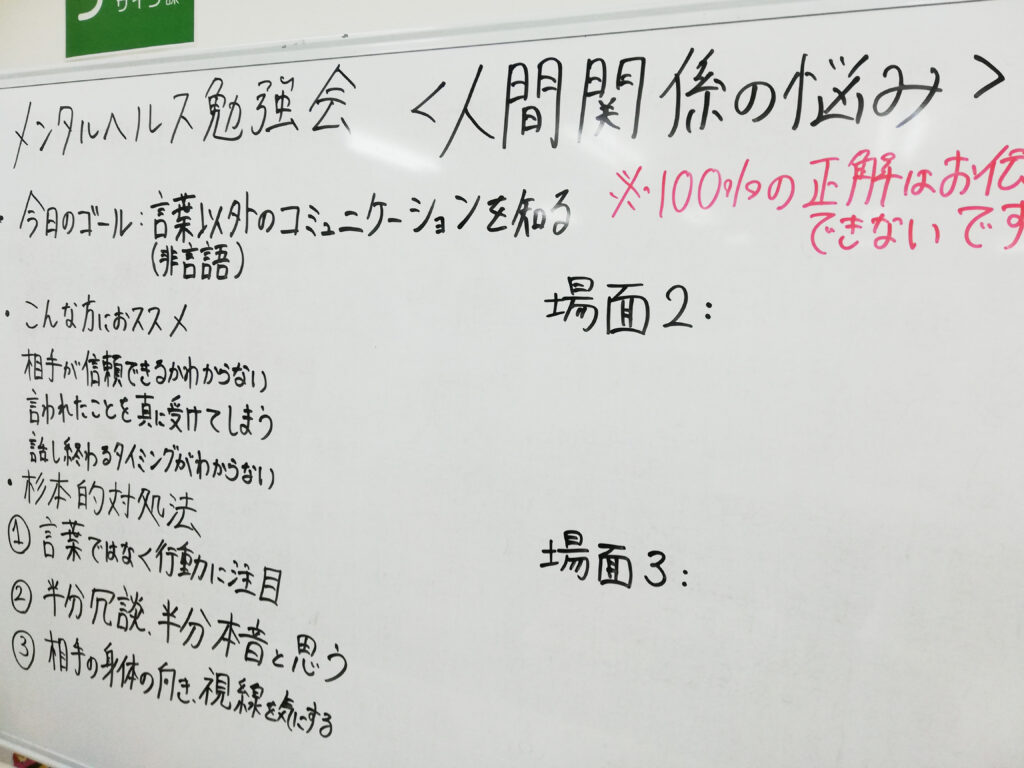 メンタルヘルス勉強会 <人間関係の悩み>
※100%の正解はお伝
できないです
・今日のゴール:言葉以外のコミュニケーションを知る
(非言語)
・こんな方におススメ
相手が信頼できるかわからない
言われたことを真に受けてしまう
話し終わるタイミングがわからない
・杉本的対処法
① 言葉ではなく行動に注目
② 半分冗談、半分本音と思う
③ 相手の身体の向き、視線を気にする
場面2:
場面3: